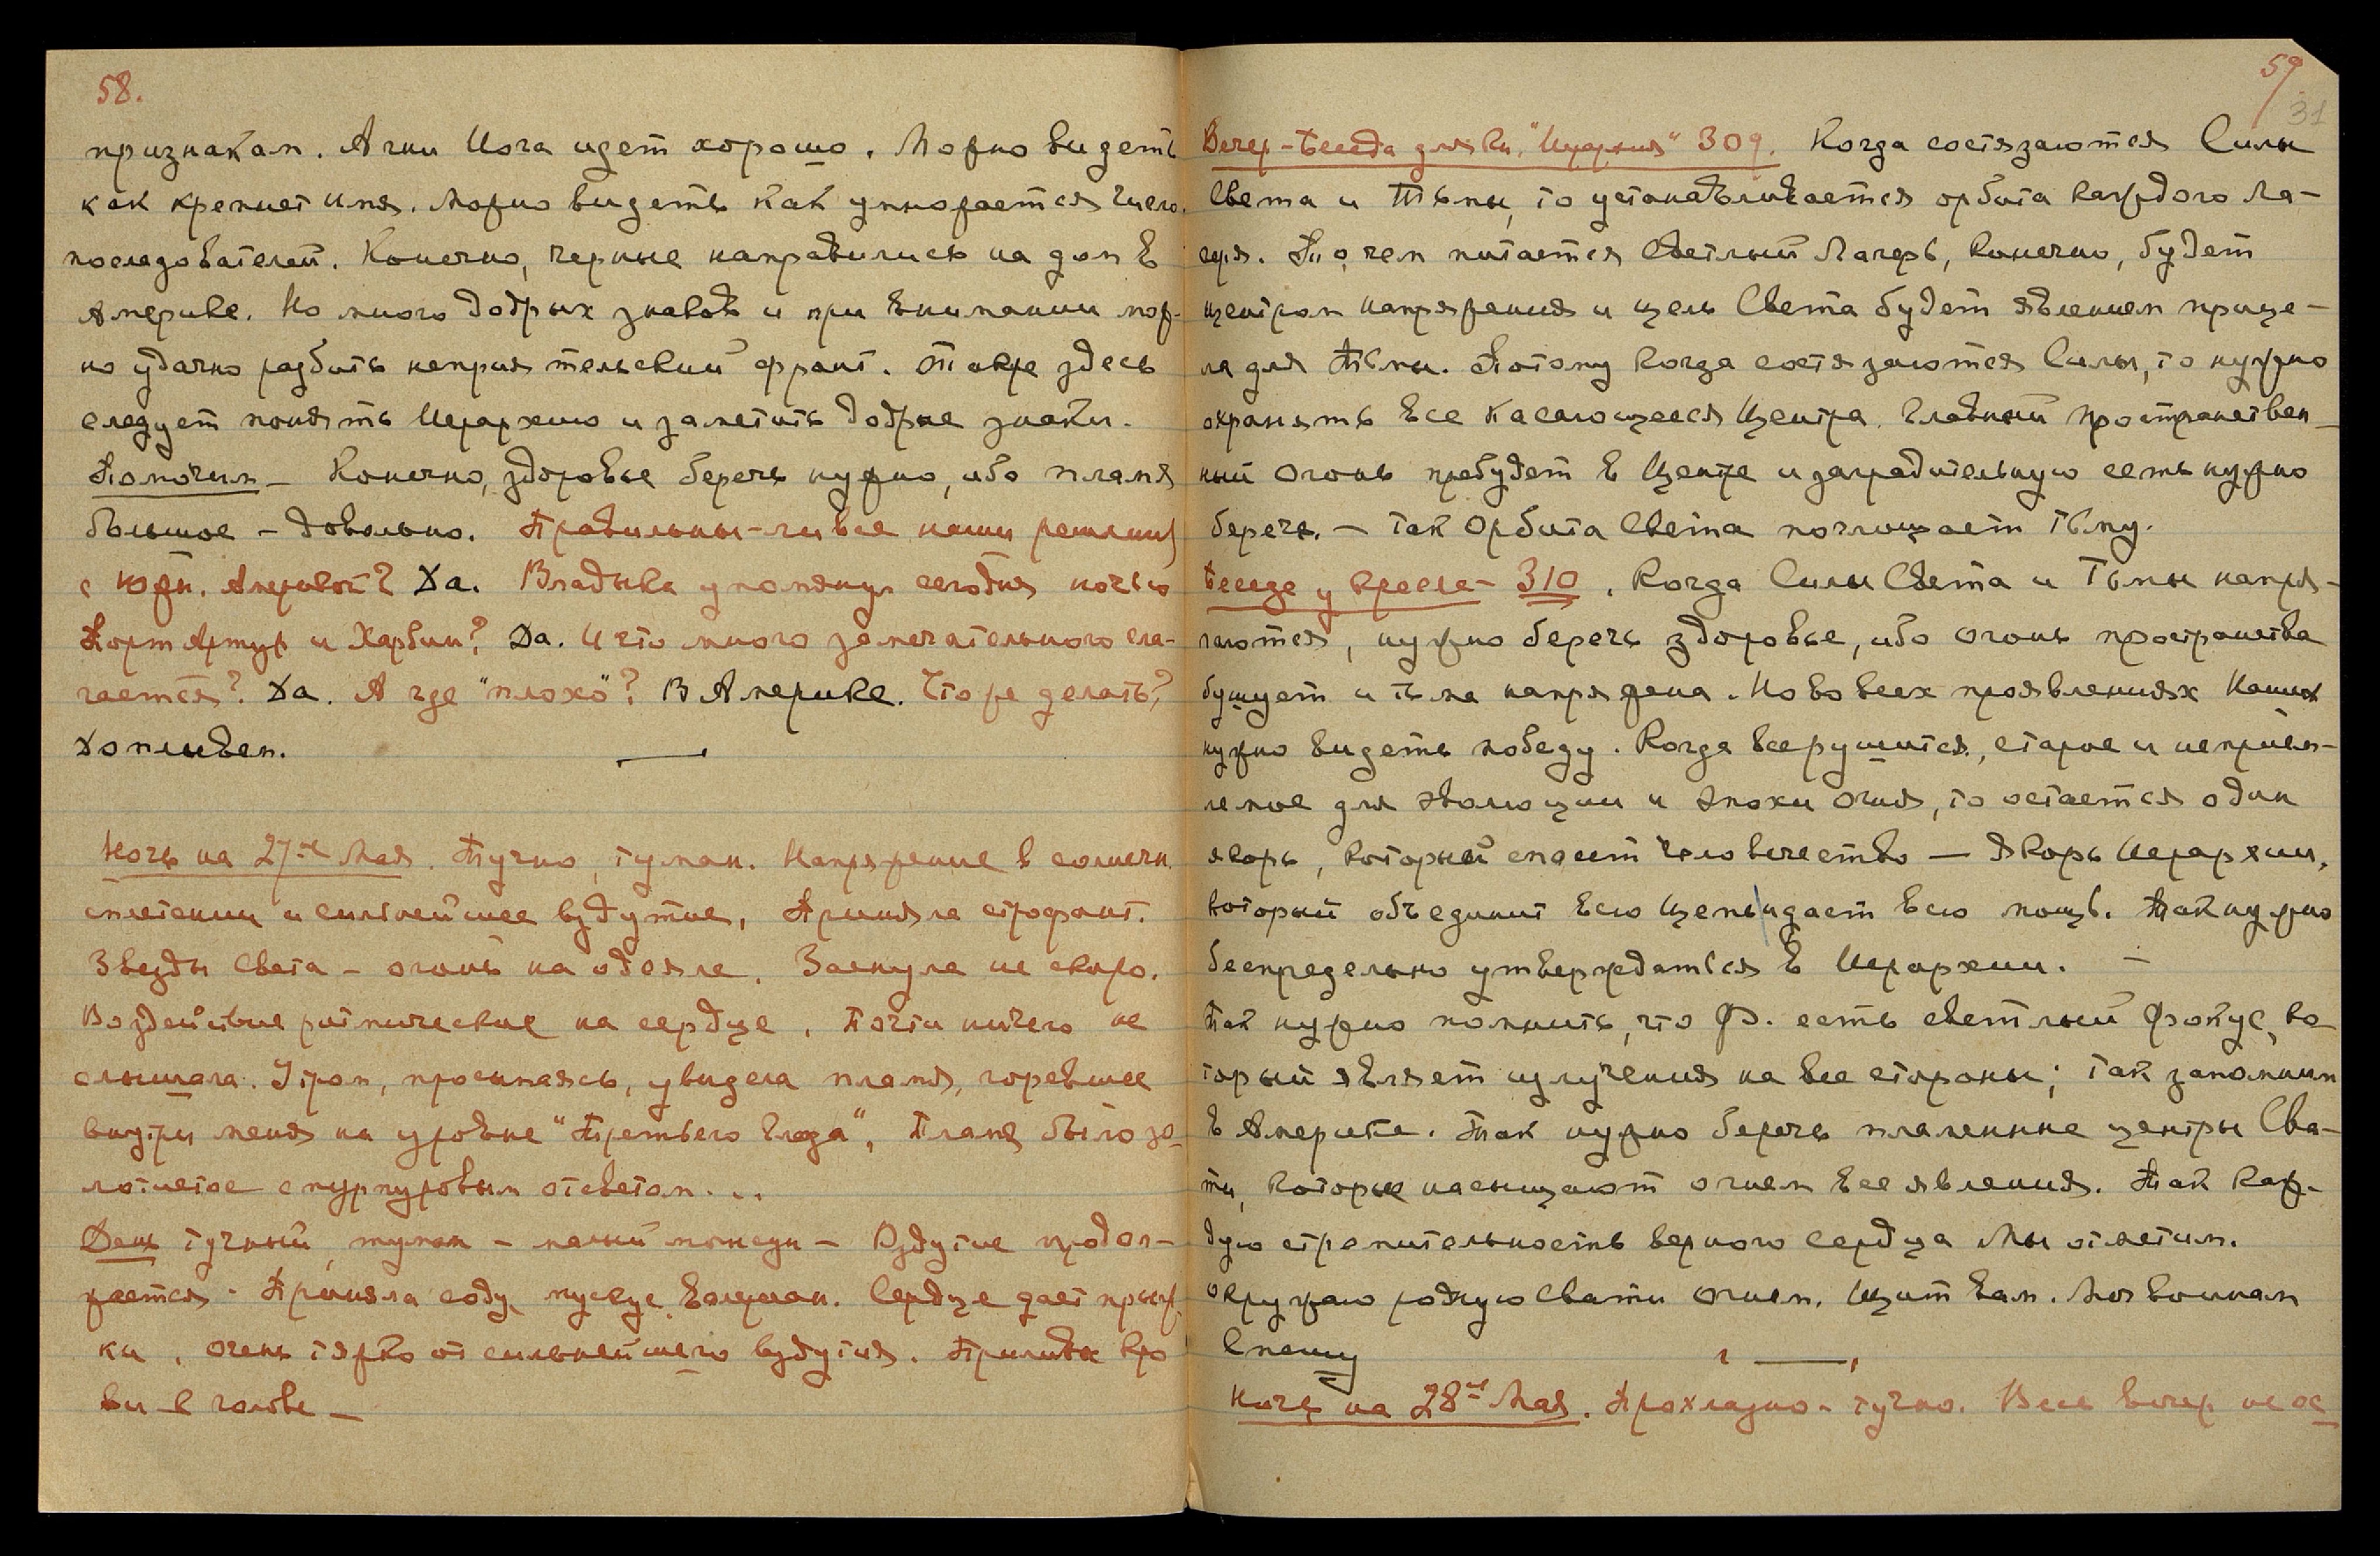 58.
признакам. Агни Йога идет хорошо. Можно видеть
как крепнет имя. Можно видеть как умножается число
последователей. Конечно, черные направились на дом в
Америке. Но много добрых знаков и при внимании мож-
но удачно разбить неприятельский фронт. Также здесь
следует понять Иерархию и заметить добрые знаки.
Помогим – Конечно, здоровье беречь нужно, ибо пламя
большое – довольно. Правильны-ли все наши решения
с Южн. Америкой? Да. Владыка упомянул сегодня ночью
Порт Артур и Харбин? Да. И что много замечательного сла-
гается? Да. А где "плохо"? В Америке. Что же делать?
Доплывем.
Ночь на 27-ое Мая. Тучно, туман. Напряжение в солнечн.
сплетении и сильнейшее вздутие, Приняла строфант.
Звезды Света – огонь на одеяле. Заснула не скоро.
Воздействие ритмические на сердце. Почти ничего не
слышала. Утром, просыпаясь, увидела пламя, горевшее
внутри меня на уровне "Третьего Глаза", Пламя было зо-
лотистое с пурпуровым отсветом...
День тучный, туман – малый монсун – Вздутие продол-
жается. Приняла соду, мускус, . Сердце дает прыж-
ки, очень тяжко от сильнейшего вздутия. Приливы кро
ви в голове –
59
31
Вечер – Беседа для Кн. "Иерархия" 309. Когда состязаются Силы
Света и Тьмы, то устанавливается орбита каждого Ла-
геря. То, чем питается Светлый Лагерь, конечно, будет
центром напряжения и цель Света будет явлением прице-
ла для Тьмы. Потому когда состязаются Силы, то нужно
охранять все касающееся Центра. Главный пространствен-
ный огонь пребудет в Центре и заградительную сеть нужно
беречь. – Так Орбита Света поглощает тьму.
Беседе у Кресле – 310. Когда Силы Света и Тьмы напря-
гаются, нужно беречь здоровье, ибо огонь пространства
бушует и тьма напряжена. Но во всех проявлениях Наших
нужно видеть победу. Когда все рушится, старое и неприем-
лемое для эволюции и эпохи огня, то остается один
якорь, который спасет человечество — Якорь Иерархии,
который объединит всю Цепь и дает всю мощь. Так нужно
беспредельно утверждаться в Иерархии. –
Так нужно помнить, что Ф. есть светлый Фокус, ко-
торый являет излучения на все стороны; так запомним
в Америке. Так нужно беречь пламенные центры Сва-
ти, которые насыщают огнем все явления. Так каж-
дую стремительность верного сердца Мы отметим.
Окружаю родную Свати Огнем. Щит вам. Моя воинам
Спешу
Ночь на 28-ое Мая. Прохладно – тучно. Весь вечер не ос-